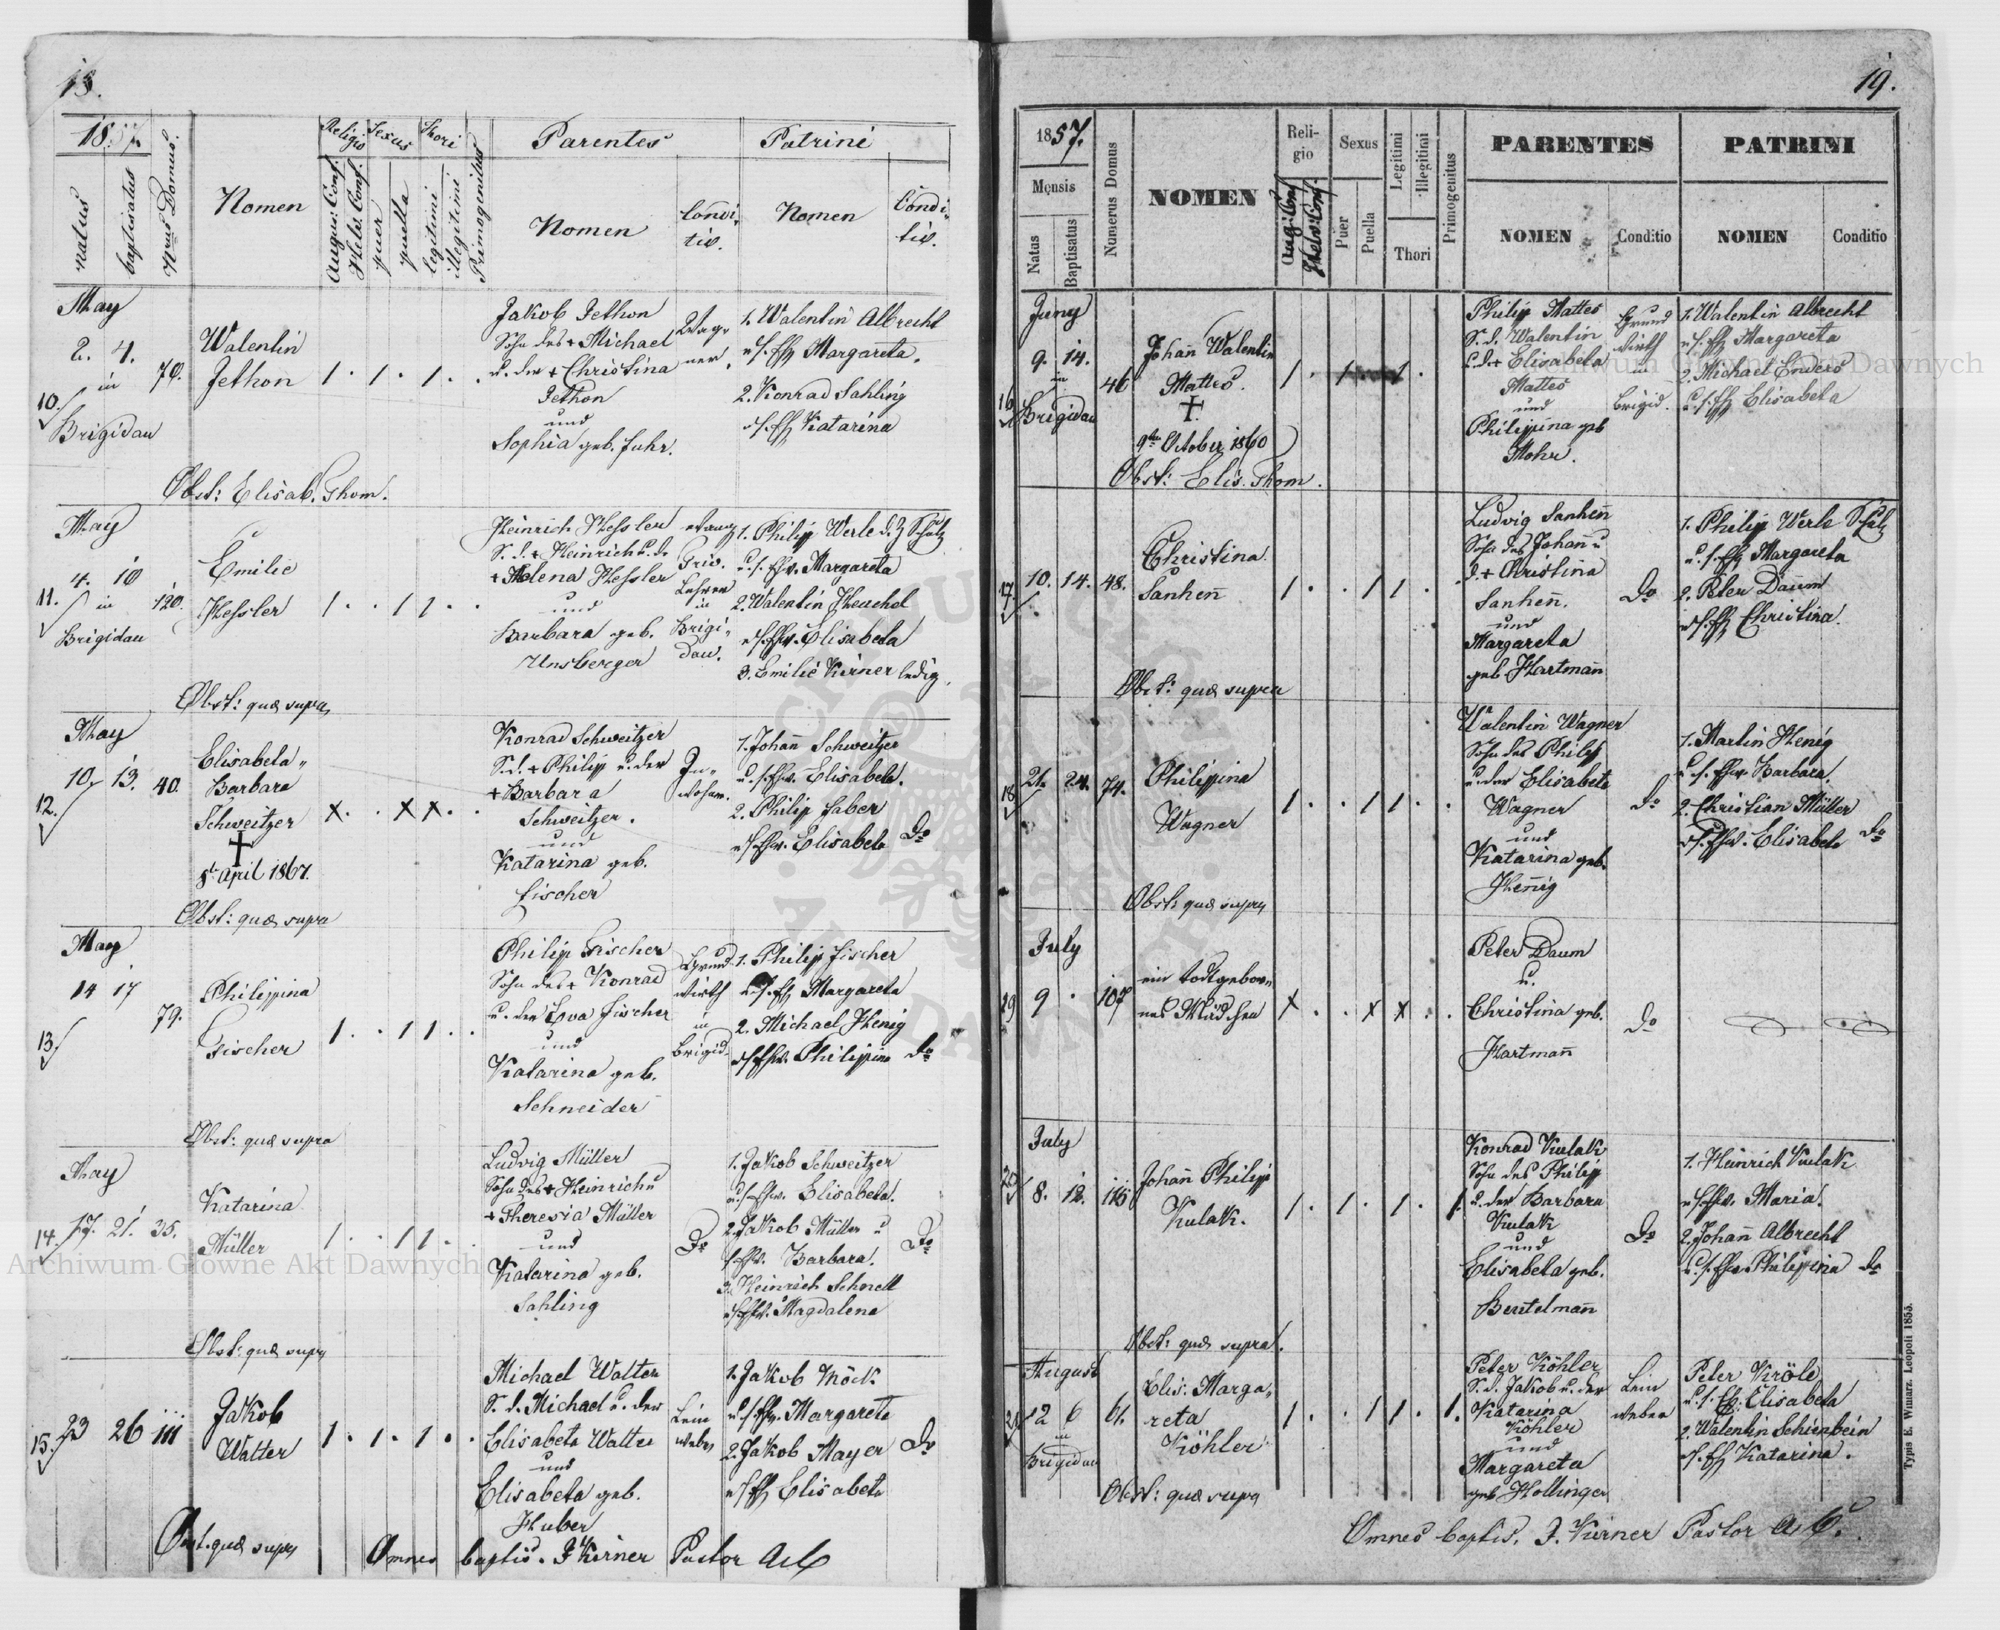 18.
1857.
natus
baptisatus
Nrus Domus.
Nomen
Religio
Sexus
Thori
August. Conf.
Helv. Conf.
puer
puella
legitimi
illegitimi
Primogenitus
Parentes
Nomen
Conditio.
Patrini
Nomen
Conditio.
May
2. 4. 70.
in
10.
Brigidau
Walentin
Jethon
1 . 1 . 1 . .
Jakob Jethon
Sohn des + Michael
u. der + Christina
Jethon
und
Sophia geb. Fuhr.
Wagner.
1. Walentin Albrecht
u. s. Eh. Margareta.
2. Konrad Sahling
u. s. Eh. Katarina
Obst: Elisab. Thom.
May
4. 10 120.
11. in
Brigidau
Emilie
Hessler
1 . . 1 1 . .
Heinrich Hessler
S. d. + Heinrich u. d.
+ Helena Hessler
und
Barbara geb.
Unsberger
evang.
Priv.
Lehrer
in
Brigidau.
1. Philipp Werle d. z. Schulz
u. s. Ehw. Margareta
2. Walentin Heuchel
u. s. Ehw. Elisabeta
3. Emilie Kirner ledig.
Obst: quæ supra
May
10. 13. 40.
12.
Elisabeta
Barbara
Schweitzer
+
8t April 1867.
X . . X X . .
Konrad Schweitzer
S. d. + Philip u. der
+ Barbara
Schweitzer.
und
Katarina geb.
Fischer
Inwohner.
1. Johañ Schweitzer
u. s. Ehw. Elisabeta.
2. Philip Faber
u. s. Ehw. Elisabeta Do
Obst: quæ supra
May
14 17 79.
13.
Philippina
Fischer
1 . . 1 1 . .
Philip Fischer
Sohn des + Konrad
u. der Eva Fischer
und
Katarina geb.
Schneider
Grundwirth
in
Brigid.
1. Philip Fischer
u. s. Eh. Margareta
2. Michael Henig
u. s. Ehw. Philippina Do
Obst: quæ supra
May
14. 17. 21. 35.
Katarina
Müller
1 . . 1 1 . .
Ludvig Müller
Sohn des + Heinrich u
+ Theresia Müller
und
Katarina geb.
Sahling
Do
1. Jakob Schweitzer
u. s. Ehw. Elisabeta.
2. Jakob Müller u
s. Ehw. Barbara.
3. Heinrich Schnell
u. s. Ehw. Magdalena
Do
Obst: quæ supra
15. 23 26 111
Jakob
Walter
1 . 1 . 1 . .
Michael Walter
S. d. Michael u. der
Elisabeta Walter
und
Elisabeta geb.
Huber
Leinweber
1. Jakob Möck
u. s. Ehw. Margareta
2. Jakob Mayer
u. s. Eh. Elisabeta
Do
Obst. quæ supra
Omnes baptis. J. Kirner Pastor A. C.
19.
1857.
Mensis
Natus
Baptisatus
Numerus Domus
NOMEN
Religio
Aug. Conf.
Helv. Conf.
Sexus
Puer
Puella
Legitimi
Illegitimi
Thori
Primogenitus
PARENTES
NOMEN
Conditio
PATRINI
NOMEN
Conditio
Juny
9. 14. 46
in
16
Brigidau
Johañ Walentin
Mattes.
+
9ten October 1860
1 . 1 1 .
Philip Mattes
S. d. Walentin
u. d. + Elisabeta
Mattes
und
Philippina geb
Mohr.
Grundwirth
in
Brigid.
1. Walentin Albrecht
u. s. Eh. Margareta
2. Michael Enders
u. s. Eh. Elisabeta
Obst: Elis. Thom.
17 10. 14. 48.
Christina
Sanheñ
1 . . 1 1 .
Ludvig Sanheñ
Sohn des Johañ u
d. + Christina
Sanheñ.
und
Margareta
geb Hartmañ
Do
1. Philip Werle Schulz
u. s. Eh. Margareta
2. Peter Daum
u. s. Eh. Christina.
Obst: quæ supra
18 21. 24. 74.
Philippina
Wagner
1 . . 1 1 . .
Walentin Wagner
Sohn des Philip
u. der Elisabeta
Wagner
und
Katarina geb.
Heñig
Do
1. Martin Henig
u. s. Ehw. Barbara.
2. Christian Müller
u. s. Ehw. Elisabeta Do
Obst: quæ supra
July
19 9 . 107
ein todtgebornes
Mädchen
X . . X X . .
Peter Daum
u.
Christina geb.
Hartmañ
Do
July
20 8. 12. 115
Johañ Philipp
Kulak.
1 . 1 . 1 . 1.
Konrad Kulak
Sohn des Philip
u. der Barbara
Kulak
und
Elisabeta geb.
Beutelmañ
Do
1. Heinrich Kulak
u. s. Ehw. Maria.
2. Johañ Albrecht
u. s. Ehw. Philippina Do
Obst: quæ supra.
August
21 2 6 61.
in
Brigidau
Elis. Margareta
Köhler
1 . . 1 1 . 1.
Peter Köhler
S. d. Jakob u. der
Katarina
Köhler
und
Margareta
geb Hollinger
Leinweber
Peter Kröle
u. s. Eh. Elisabeta
2. Walentin Scheinbein
u. s. Eh. Katarina.
Obst: quæ supra
Omnes baptis. J. Kirner Pastor A. C.
Typis E. Winiarz. Leopoli 1855.
Archiwum Główne Akt Dawnych
Archiwum Główne Akt Dawnych